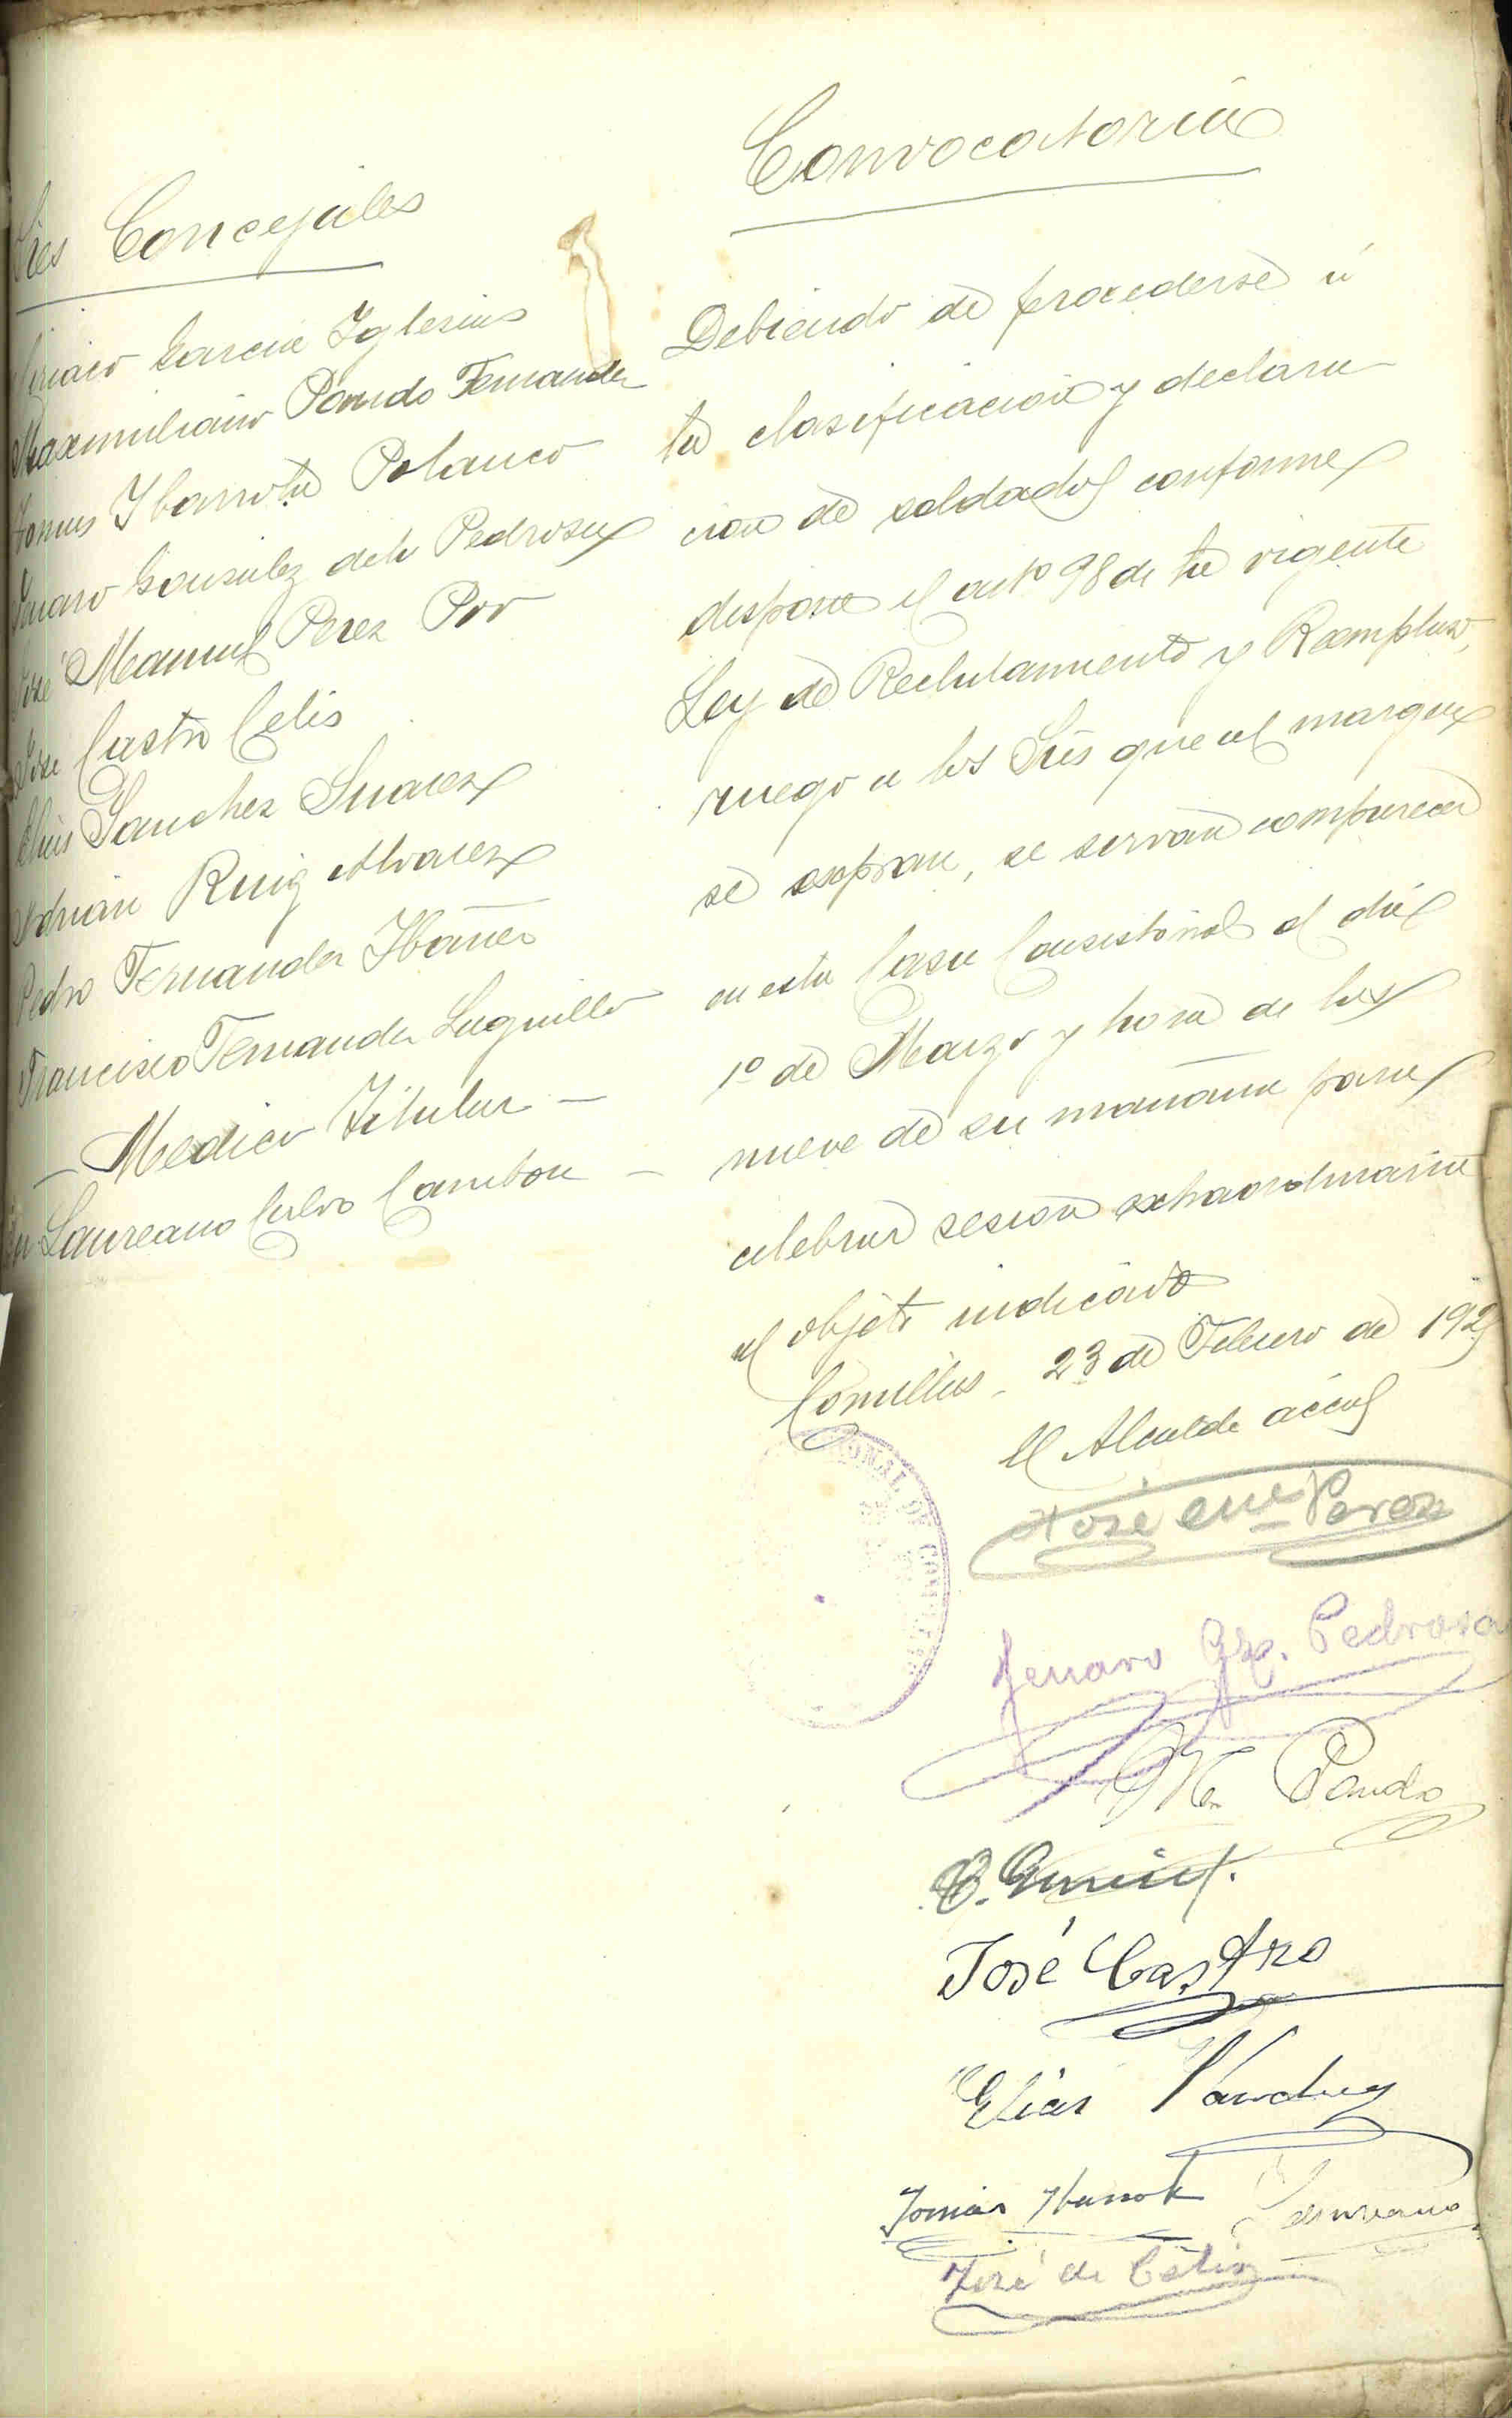 Convocatoria
Sres Concejales
Ciriaco Garcia Iglesias
Maximiliano Pando Fernandez
Tomas Ibarrota Polanco
Genaro Gonzalez de la Pedrosa
José Manuel Perez Por
José Castro Celis
Elias Sanchez Suarez
Adrián Ruiz Alvarez
Pedro Fernandez Ibañez
Francisco Fernandez Luguillo
— Medico Titular —
Laureano Calvo Cambon —
Debiendo de procederse á
la clasificacion y declara-
cion de soldados conforme
dispone el artº 98 de la vigente
Ley de Reclutamiento y Reemplazo,
ruego a los Sres que al margen
se expresan, se sirvan comparecer
en esta Casa Consistorial el dia
1º de Marzo y hora de las
nueve de su mañana para
celebrar sesion extraordinaria
al objeto indicado
Comillas 23 de Febrero de 192
El Alcalde accal
José Mel Perez
Genaro Gz. Pedrosa
M. Pando
José Castro
Elias Sanchez
Tomás Ibarrot
José de Celis